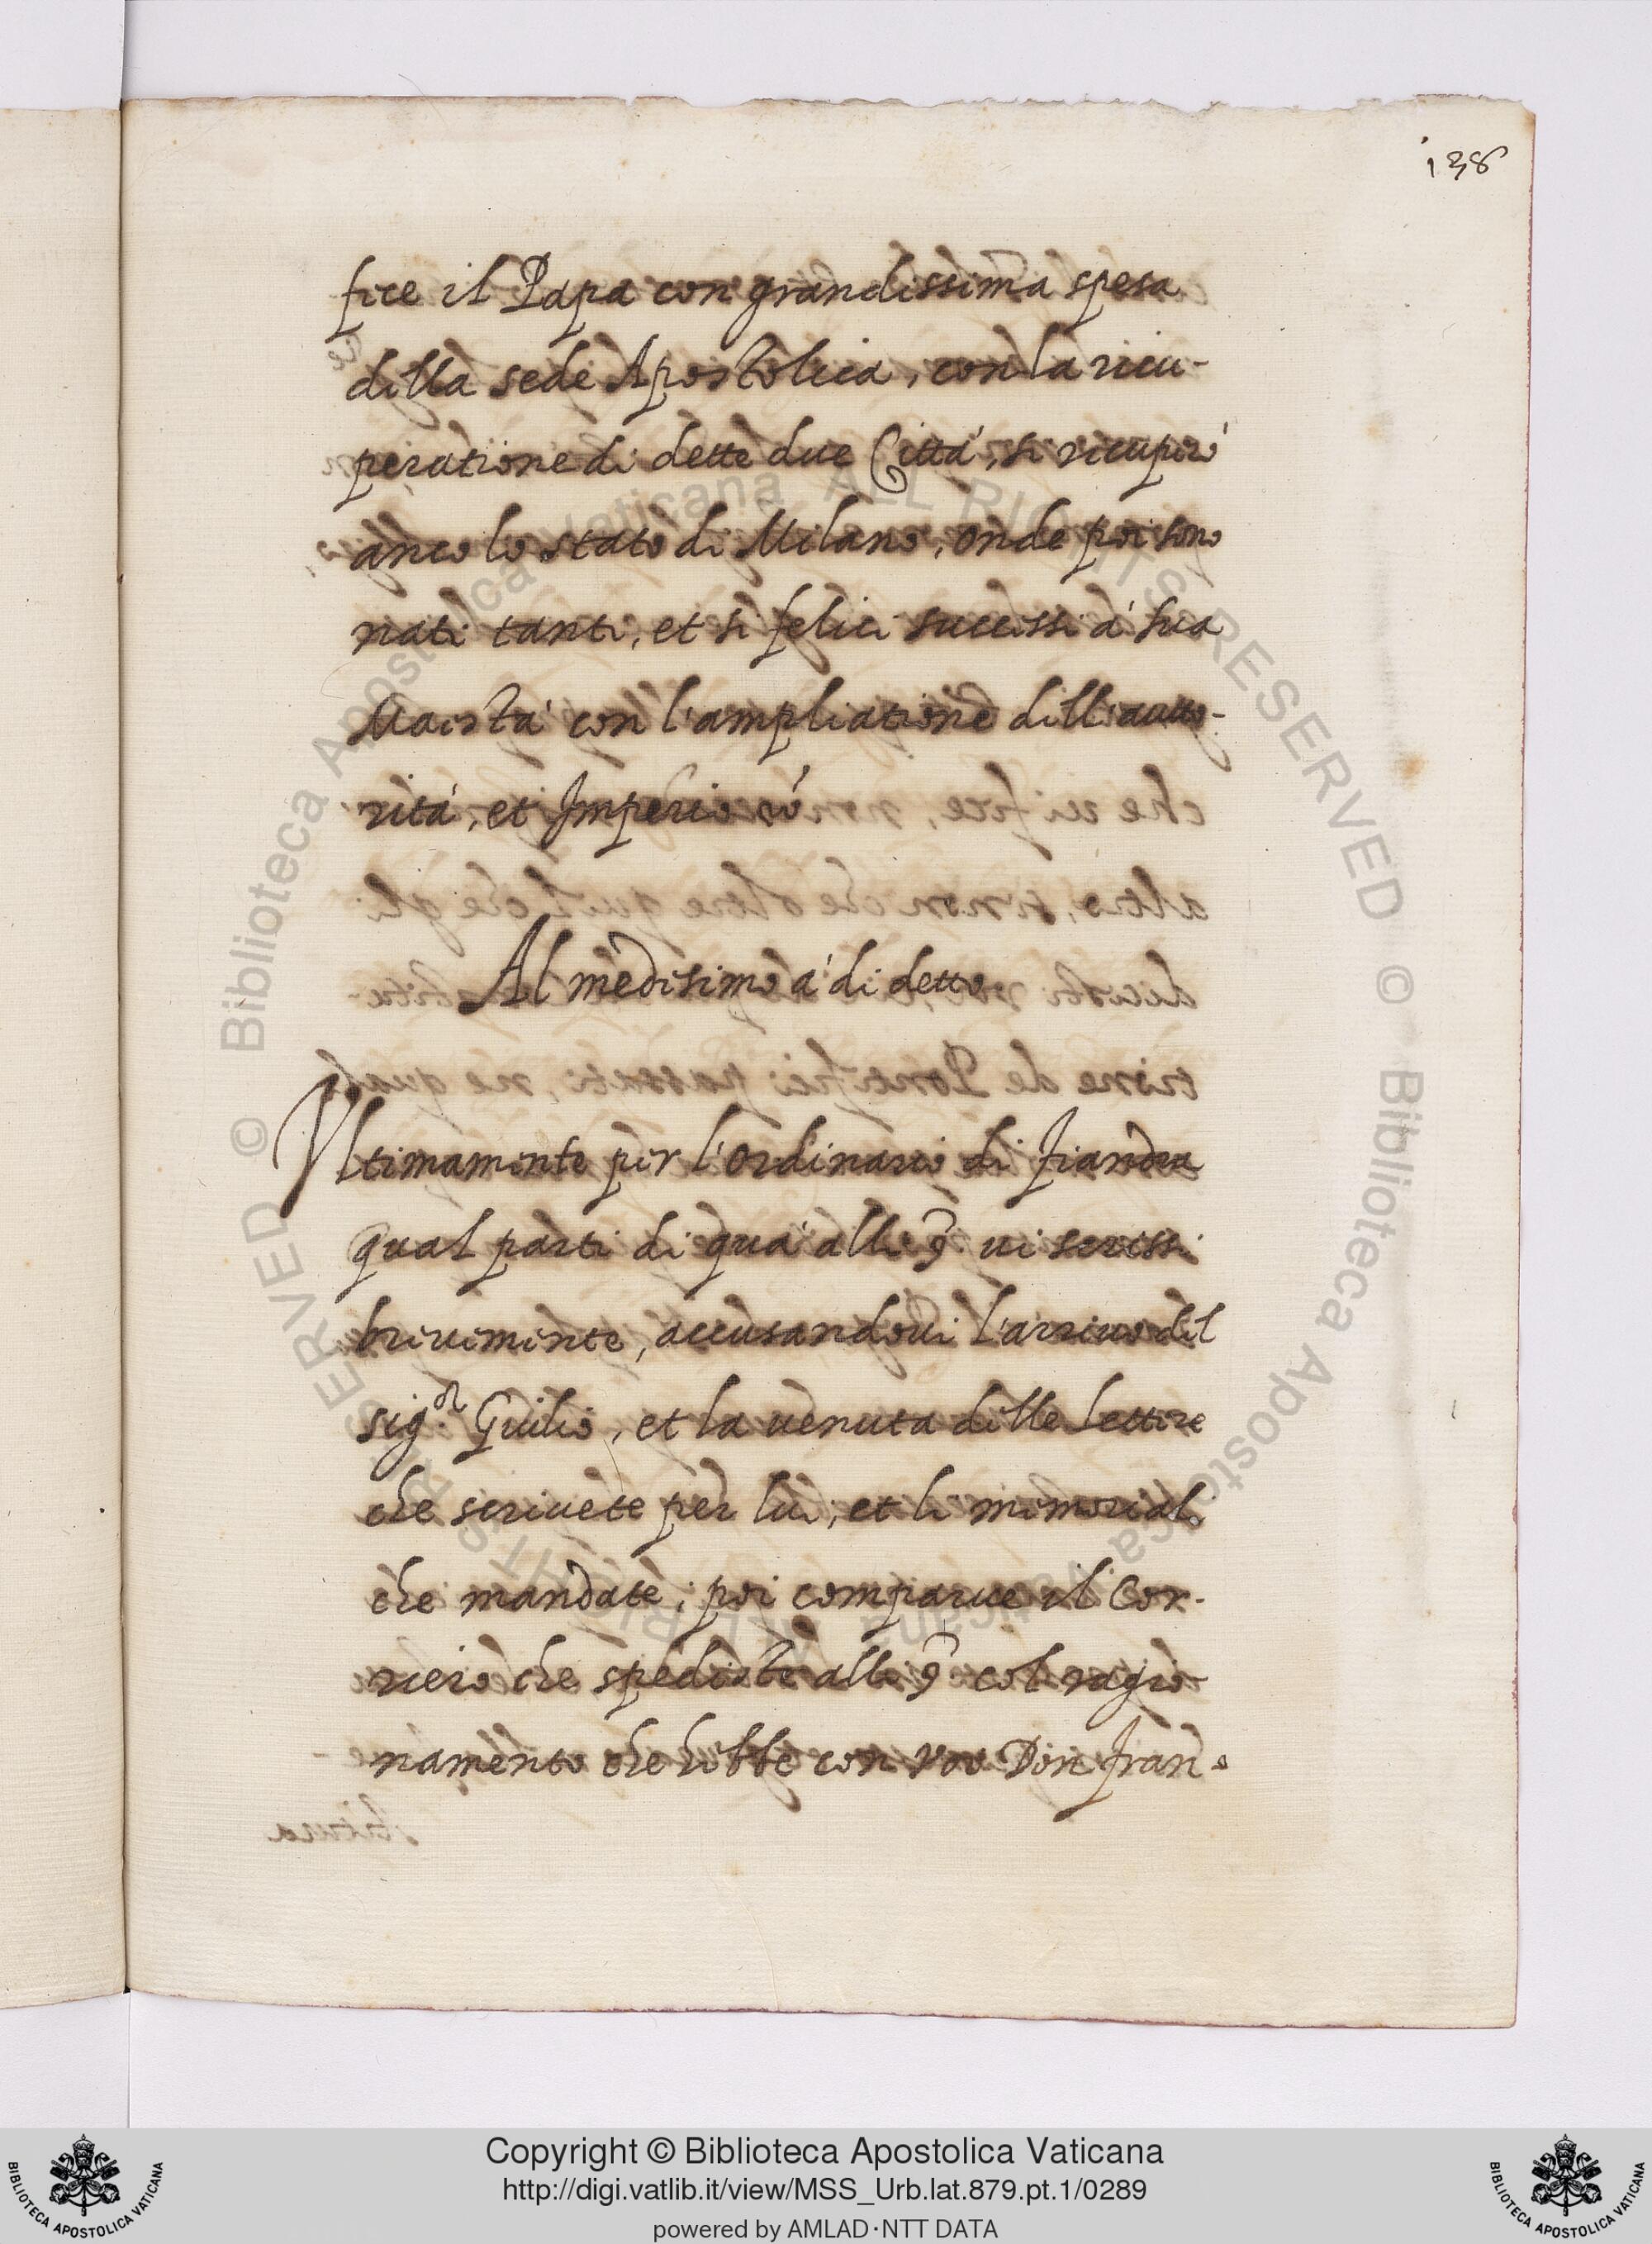 138
fece il Papa con grandissima spesa
della sede Apostolica, con la ricu-
peratione di dette due Città, si ricuperò
anco lo stato di Milano, onde poi sono
nati tanti, et si felici successi à sua
Maestà con l'ampliatione dell'autto-
rità, et Imperio
Al medesimo a' di detto
Vltimamente per l'ordinario di fiandra
qual parti di quà alli 9 ui scrissi
breuemente, accusandoui l'arriuo del
sig.r Giulio, et la uenuta delle lettere
che scriuete per lui, et li memoriali
che mandate; poi comparue il Cor-
riero che spediste alli 9 col ragio-
namento che hebbe con voi Don fran-
Copyright © Biblioteca Apostolica Vaticana
http://digi.vatlib.it/view/MSS_Urb.lat.879.pt.1/0289
powered by AMLAD·NTT DATA
BIBLIOTECA APOSTOLICA VATICANA
BIBLIOTECA APOSTOLICA VATICANA
© Biblioteca Apostolica Vaticana ALL RIGHTS RESERVED © Biblioteca Apostolica Vaticana ALL RIGHTS RESERVED